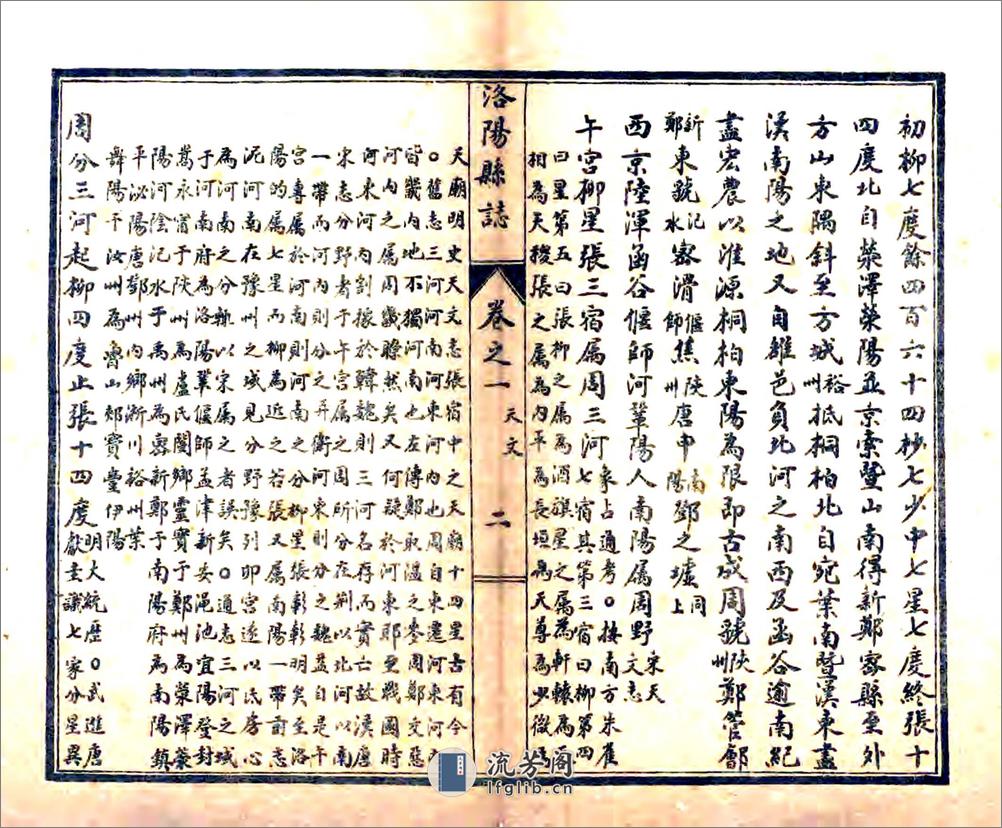 初柳七度餘四百六十四抄七少中七星七度終張十
四度北自滎澤滎陽並京索暨山南得新鄭密縣至外
方山東隅斜至方城裕州抵桐柏北自宛葉南暨漢東盡
漢南陽之地又自雒邑負北河之南西及函谷逾南紀
盡宏農以淮源桐柏東陽為限即古成周虢陝州鄭管鄶
新鄭東虢汜水密滑偃師焦陝州唐申南陽鄧之墟同上
西京陸渾函谷偃師河鞏陽人南陽屬周野宋天文志
午宮柳星張三宿屬周三河象占通考○按南方朱雀
七宿其第三宿曰柳第四
曰星第五曰張柳之屬為酒旗星之屬為軒轅為天
相為天稷張之屬為內平為長垣為天尊為少微為
洛陽縣誌
卷之一 天文 二
天廟明史天文志張宿中之天廟十四星古有今
○舊志三河河南河東河內也周自東遷河東河
皆畿內地不獨河南河也在左傳鄭取溫之麥周鄭交惡
河內之屬周畿瞭然矣又何疑於河東耶至戰國時
河東河內割據於韓魏則三河名存而實亡故漢唐
宋志分野者于午宮屬之周所分在荊以北河以南
一帶而河內則分之并衛河東則分之魏益自是午
宮專屬於河南河南之分柳星張彰彰明矣至洛
陽的屬七星而柳為近之若張又屬南陽一帶前志
泥河南在豫州之域見分野豫列卯宮遂以氐房心
為河南之分軌以宋屬之者誤矣○通志三河之域
于河南府為洛陽鞏偃師孟津新安澠池宜陽登封
嵩永甯于陝州為盧氏閿鄉靈寶于鄭州為滎澤滎
陽河陰汜水于禹州為密新鄭于南陽府為南陽鎮
平泌陽唐鄧州內鄉淅川裕州葉
舞陽于汝州為魯山郟寶豐伊陽
周分三河起柳四度止張十四度明大統歷○武進唐
獻圭議七家分星異
流芳阁
lfglib.cn